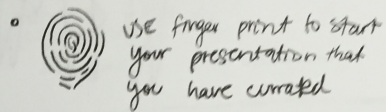 use finger print to start
your presentation that
you have currated